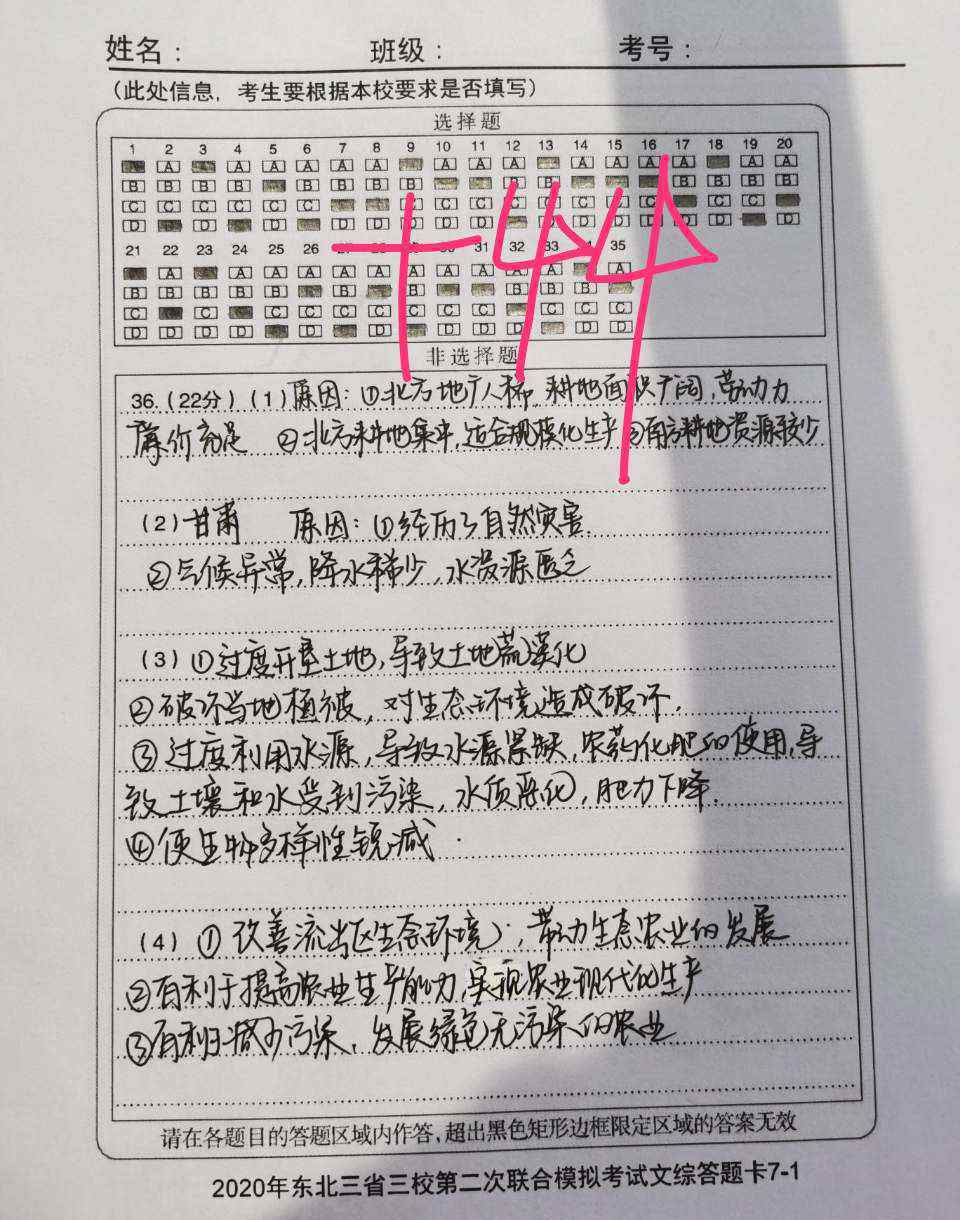 姓名： 班级： 考号：
（此处信息，考生要根据本校要求是否填写）
选择题
1 2 3 4 5 6 7 8 9 10 11 12 13 14 15 16 17 18 19 20
21 22 23 24 25 26 31 32 35
非选择题
36.（22分）（1）原因：①北方地广人稀，耕地面积广阔，劳动力
廉价充足 ②北方耕地集中，适合规模化生产 ③南方耕地资源较少
（2）甘肃 原因：①经历了自然灾害.
②气候异常，降水稀少，水资源匮乏
（3）①过度开垦土地，导致土地荒漠化
②破坏当地植被，对生态环境造成破坏.
③过度利用水源，导致水源紧缺，农药化肥的使用，导
致土壤和水受到污染，水质恶化，肥力下降.
④使生物多样性锐减.
（4）①改善流出区生态环境，带动生态农业的发展
②有利于提高农业生产能力，实现农业现代化生产
③有利于减少污染，发展绿色无污染的农业
请在各题目的答题区域内作答，超出黑色矩形边框限定区域的答案无效
2020年东北三省三校第二次联合模拟考试文综答题卡7-1